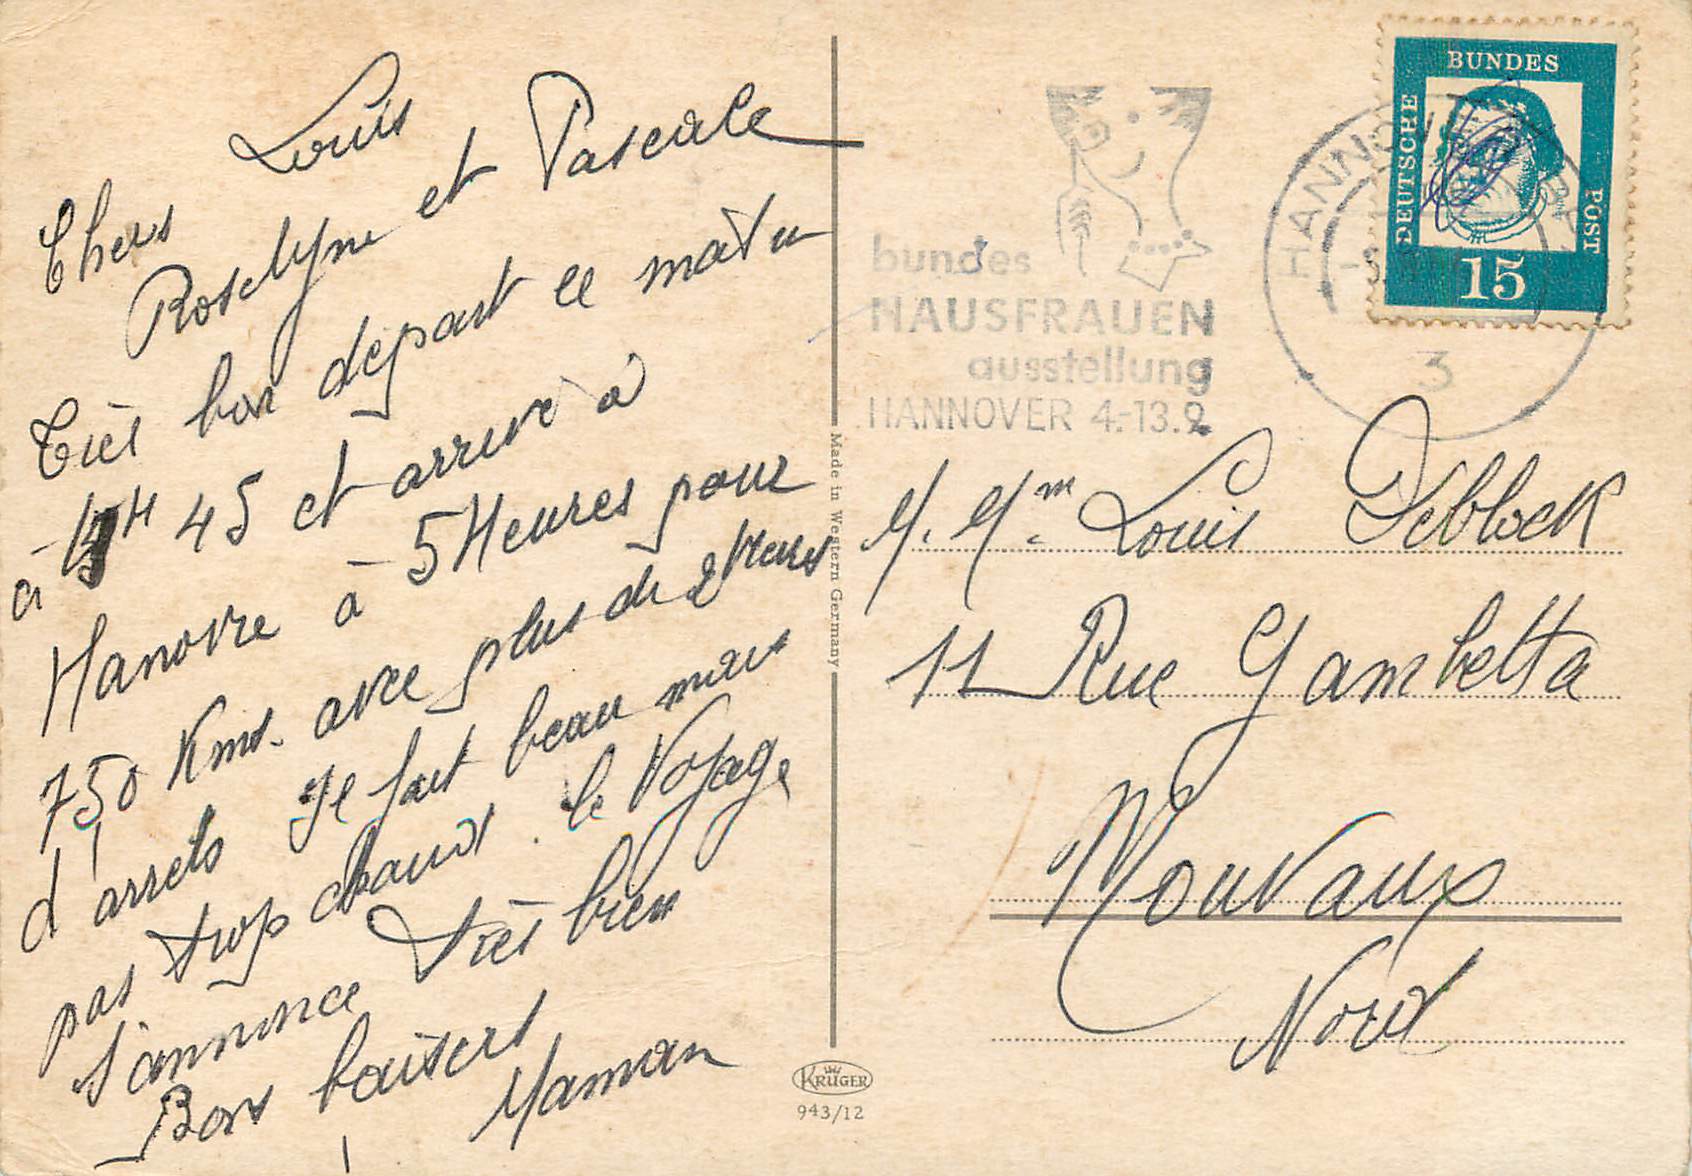 Chers Louis
Roselyne et Pascale
Très bon départ ce matin
à H 45 et arrivé à
Hanovre à 5 Heures pour
750 Kms. avec plus de 2 Heures
d'arrets Il fait beau mais
pas trop chaud. le Voyage
s'annonce très bien
Bons baisers
Maman
Made in Western Germany
KRÜGER
943/12
bundes
HAUSFRAUEN
ausstellung
HANNOVER 4.-13.9.
HANNOVER
3
DEUTSCHE BUNDES POST
15
M. Mm Louis Deblock
11 Rue Gambetta
Mouvaux
Nord